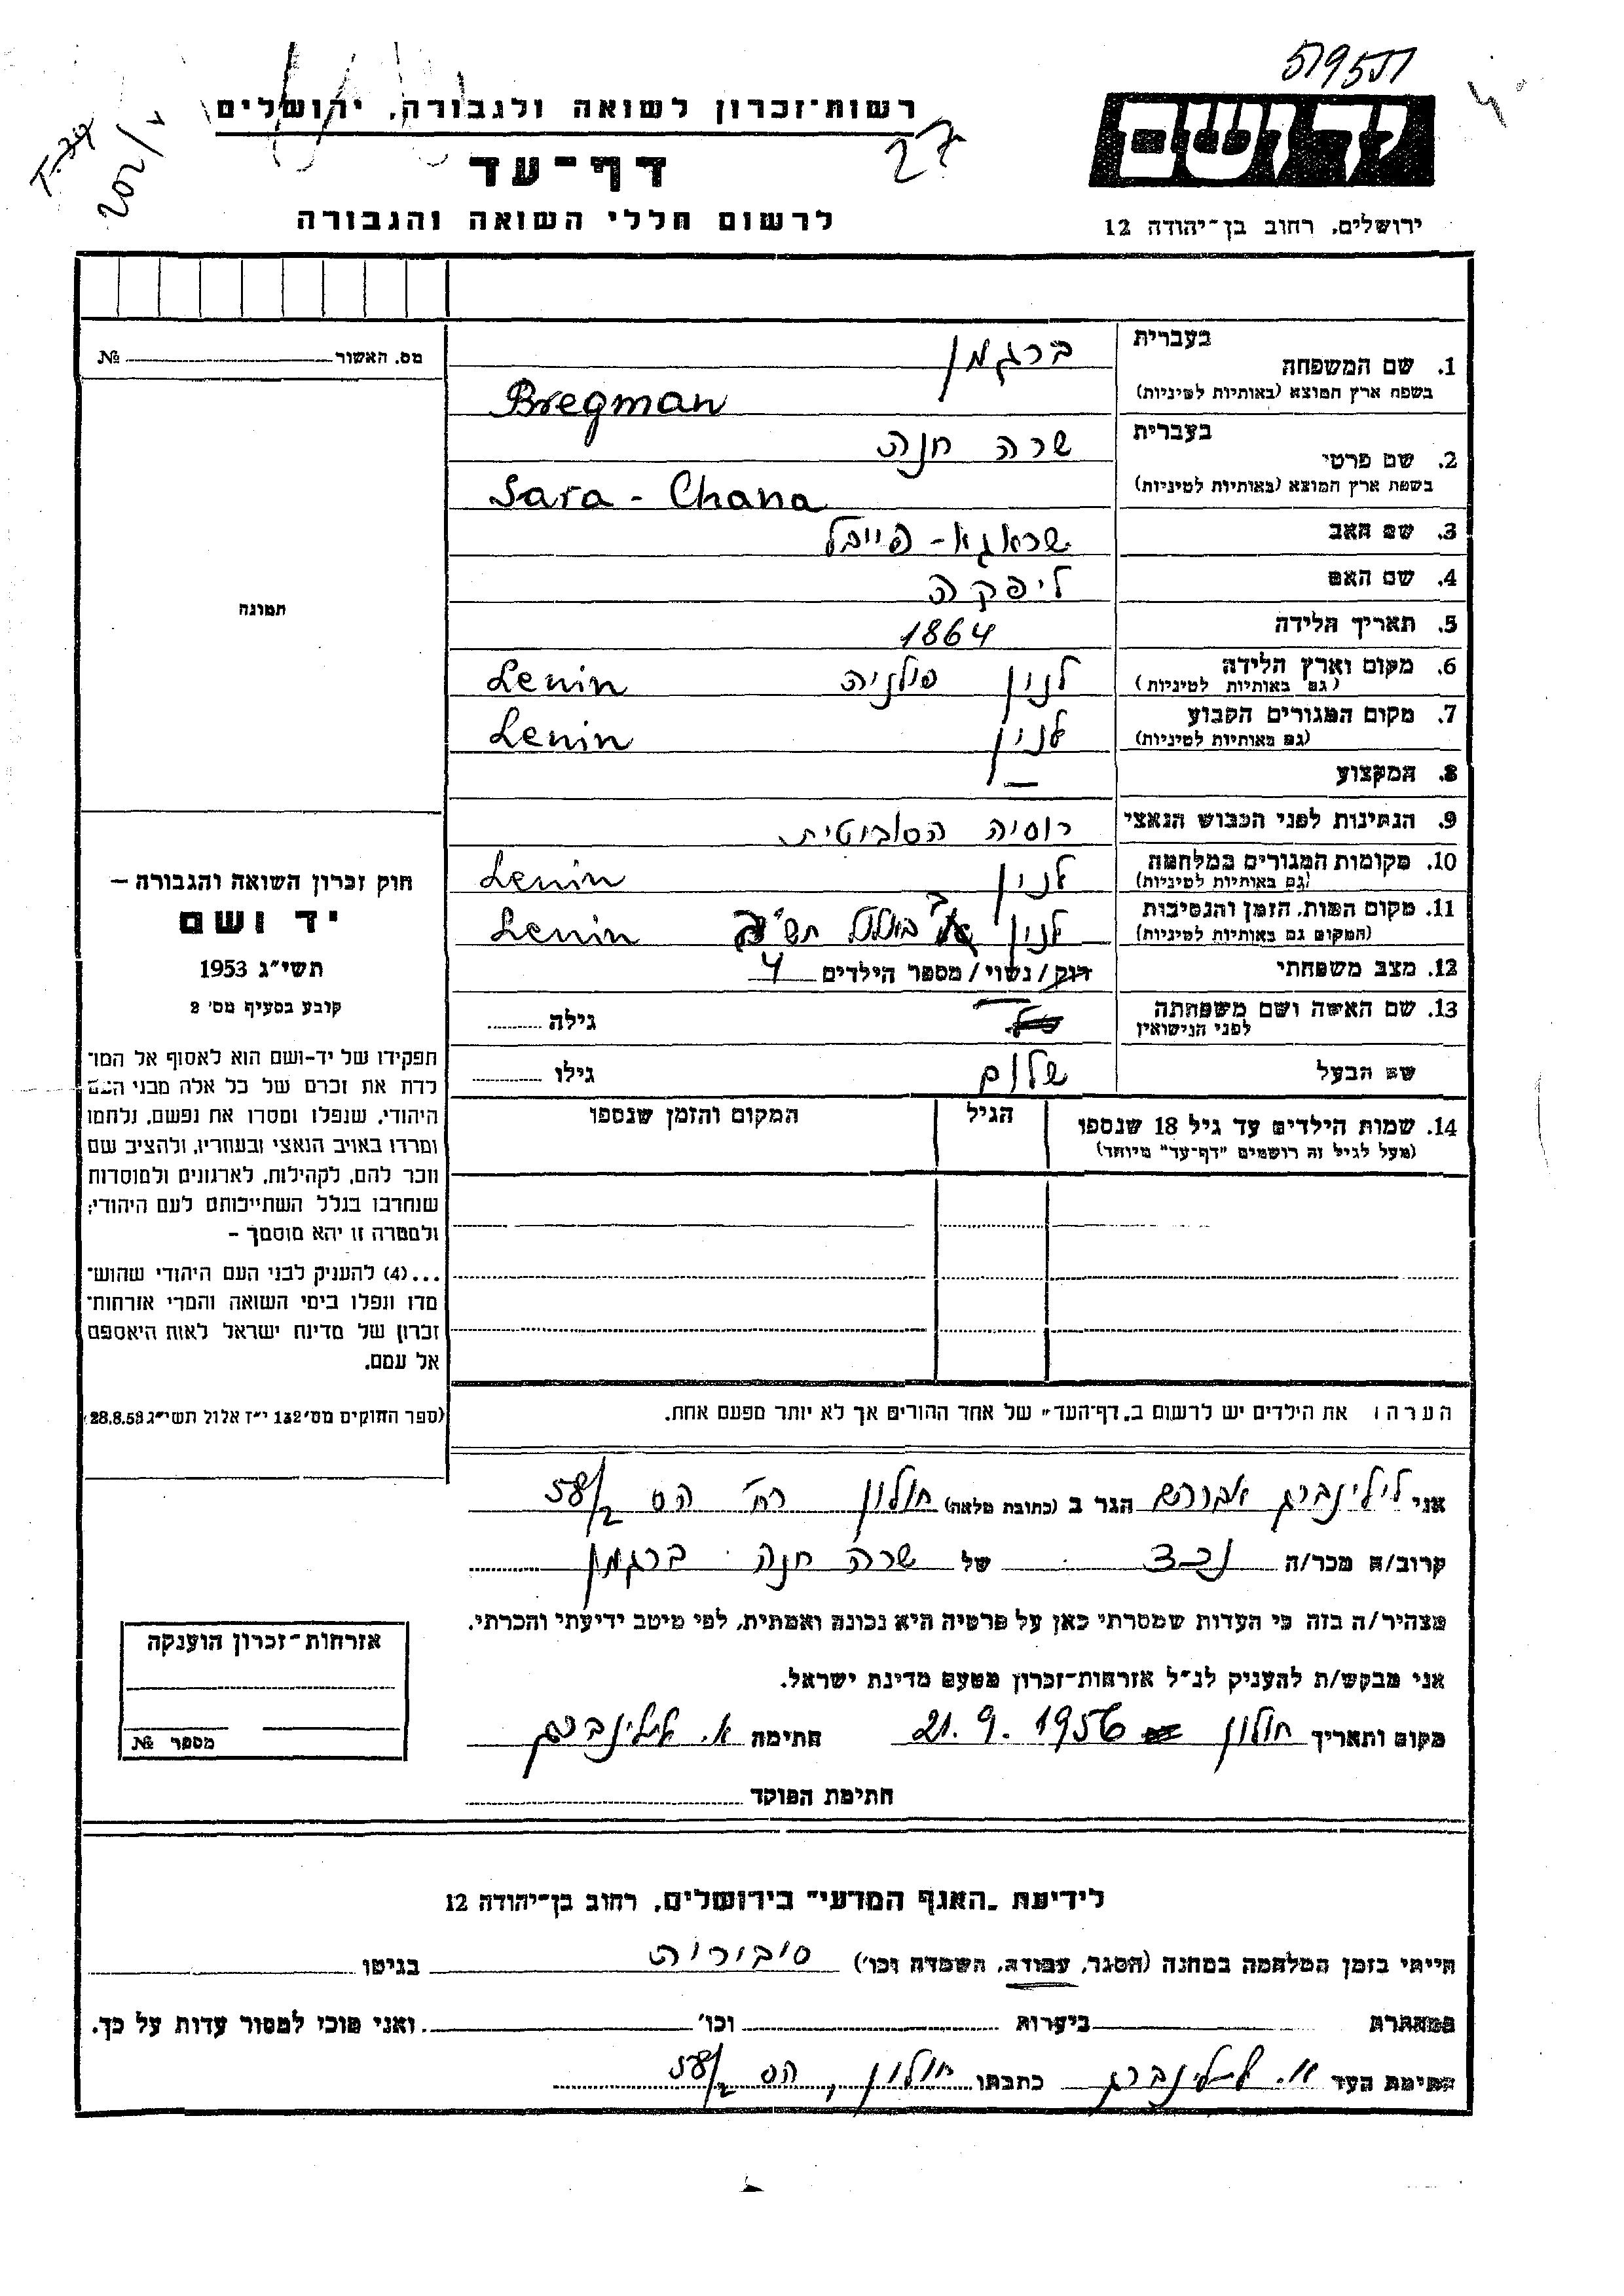 רשות־זכרון לשואה ולגבורה, ירושלים
דף־עד
לרשום חללי השואה והגבורה
27
202/
ידושם
ירושלים, רחוב בן־יהודה 12
מס. האשור № 
תמונה
חוק זכרון השואה והגבורה –
יד ושם
תשי״ג 1953
קובע בסעיף מס׳ 2
תפקידו של יד-ושם הוא לאסוף אל המו־
לדת את זכרם של כל אלה מבני העם
היהודי, שנפלו ומסרו את נפשם, נלחמו
ומרדו באויב הנאצי ובעוזריו, ולהציב שם
וזכר להם, לקהילות, לארגונים ולמוסדות
שנחרבו בגלל השתייכותם לעם היהודי;
ולמטרה זו יהא מוסמך –
...(4) להעניק לבני העם היהודי שהוש־
מדו ונפלו בימי השואה והמרי אזרחות־
זכרון של מדינת ישראל לאות היאספם
אל עמם.
(ספר החוקים מס׳ 132 י״ז אלול תשי״ג 28.8.53)
1. שם המשפחה בעברית ברגמן
בשפת ארץ המוצא (באותיות לטיניות) Bregman
2. שם פרטי בעברית שרה חנה
בשפת ארץ המוצא (באותיות לטיניות) Sara - Chana
3. שם האב שראגא - פייבל
4. שם האם ליפקה
5. תאריך הלידה 1864
6. מקום וארץ הלידה (גם באותיות לטיניות) לנין פולניה Lenin
7. מקום המגורים הקבוע (גם באותיות לטיניות) לנין Lenin
8. המקצוע —
9. הנתינות לפני הכבוש הנאצי רוסיה הסוביטית
10. מקומות המגורים במלחמה (גם באותיות לטיניות) לנין Lenin
11. מקום המות, הזמן והנסיבות (המקום גם באותיות לטיניות) לנין ב' באלול Lenin
12. מצב משפחתי רווק/נשוי/מספר הילדים 4
13. שם האשה ושם משפחתה לפני הנישואין גילה
שם הבעל שלום גילו
14. שמות הילדים עד גיל 18 שנספו הגיל המקום והזמן שנספו
(מעל לגיל זה רושמים "דף־עד" מיוחד)
הערה: את הילדים יש לרשום ב„דף־העד" של אחד ההורים אך לא יותר מפעם אחת.
אני ליליינברג אברהם הגר ב (כתובת מלאה) חולון רח' הס 58/2
קרוב/ה מכר/ה נכד של שרה חנה ברגמן
מצהיר/ה בזה כי העדות שמסרתי כאן על פרטיה היא נכונה ואמתית, לפי מיטב ידיעתי והכרתי.
אני מבקש/ת להעניק לנ״ל אזרחות־זכרון מטעם מדינת ישראל.
מקום ותאריך חולון 21.9.1956 חתימה א. ליליינברג
חתימת הפוקד
אזרחות־זכרון הוענקה
מספר №
לידיעת „האגף המדעי" בירושלים, רחוב בן־יהודה 12
הייתי בזמן המלחמה במחנה (הסגר, עבודה, השמדה וכו׳) סוביורות בגיטו
במחתרת ביערות וכו׳ ואני מוכן למסור עדות על כך.
חתימת העד א. ליליינברג כתבתו חולון, הס 58/2